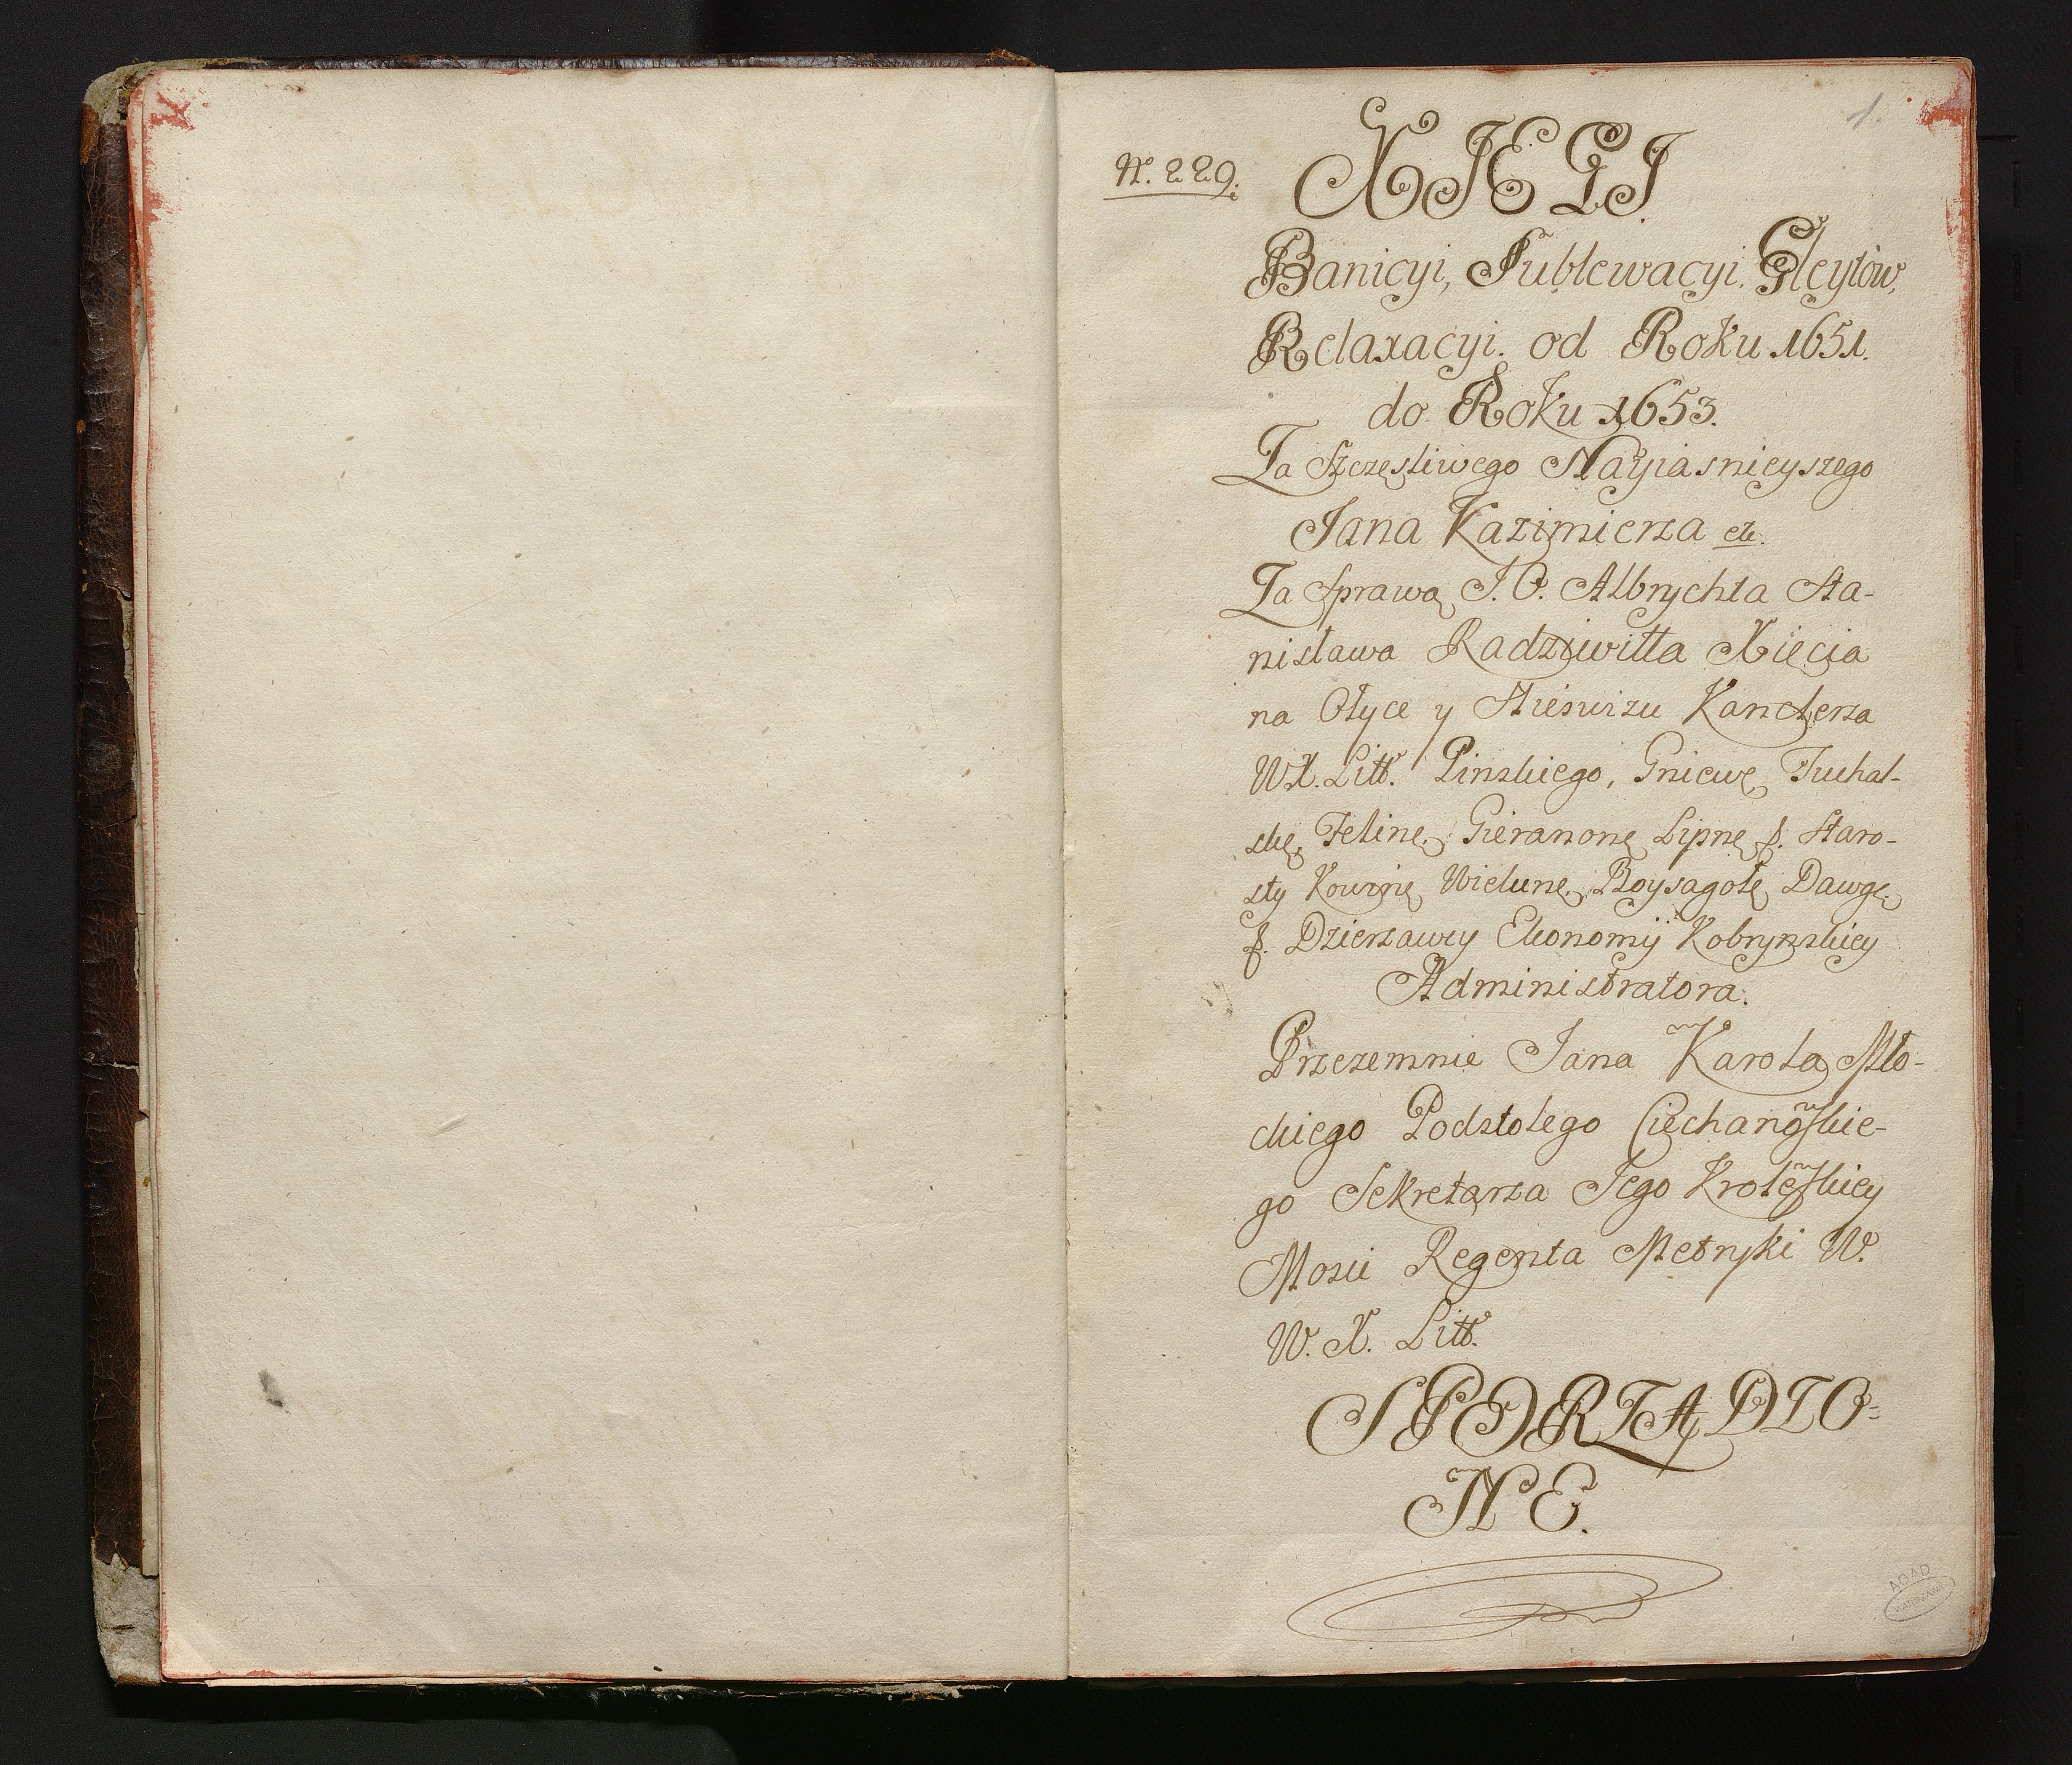 1.
N. 229.
XIĘGI
Banicyi, Sublewacyi. Gleytòw,
Relaxacyi. od Roku 1651.
do Roku 1653.
Za Szczęsliwego Nayiasnieyszego
Jana Kazimierza etc.
Za Sprawą J. O. Albrychta Sta-
nisława Radziwiłła Xięcia
na Ołyce y Nieświżu Kanclerza
W X. Litt. Pinskiego, Gniewę, Tuchol-
skę, Felinę, Gieranonę Lipnę &. Staro-
sty Kownę Wielunę, Roysagołę Dawgę
&. Dzierzawcy Ekonomij Kobrynskiey
Administratora.
Przezemnie Jana Karola Mło-
ckiego Podstolego Ciechanoskie-
go Sekretarza Jego Kroleskiey
Mosci Regenta Metryki W.
W. X. Litt.
SPORZĄDZO=
NE.
AGAD
WARSZAWA